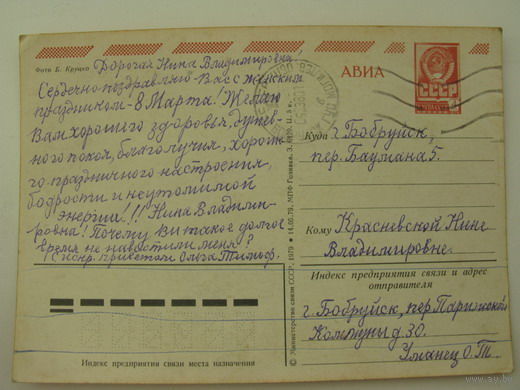 Фото Б. Круцко
Дорогая Нина Владимировна,
Сердечно поздравляю Вас с женским
праздником – 8 Марта! Желаю
Вам хорошего здоровья, душев-
ного покоя, благополучия, хороше-
го праздничного настроения,
бодрости и неутолимой
энергии!!! Нина Владими-
ровна! Почему Вы такое долгое
время не навестили меня?
С искр. приветом Ольга Тимоф.
АВИА
СССР
Куда г. Бобруйск,
пер. Баумана 5.
Кому Красневской Нине
Владимировне.
Индекс предприятия связи и адрес
отправителя
г. Бобруйск, пер. Парижской
Коммуны д. 30.
Уманец О. Т.
Индекс предприятия связи места назначения
© Министерство связи СССР, 1979 ✶ 14.06.79. МПФ Гознака. З.
www.ay.by